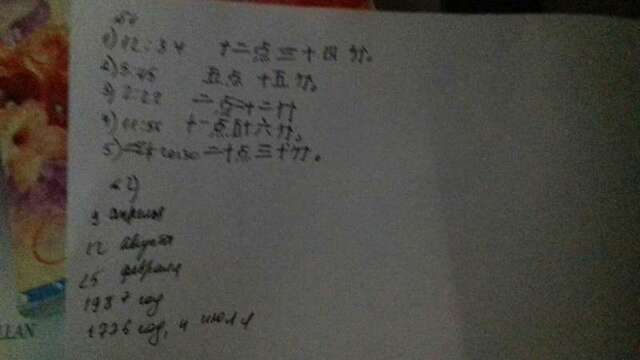 1) 12:34 十二点三十四分。
2) 5:15 五点 十五分。
3) 2:22 二点二十二分
4) 11:56 十一点五十六分。
5) 20:30 二十点三十分。
2)
9 апреля
12 августа
25 февраля
1987 год
1776 год, 4 июля
LLAN